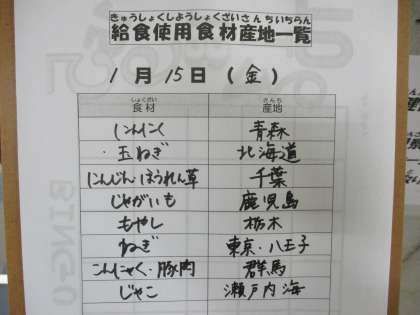 きゅうしょくしようしょくざいさんちいちらん
給食使用食材産地一覧
1月15日（金）
しょくざい さんち
食材 産地
にんにく 青森
・玉ねぎ 北海道
にんじん ほうれん草 千葉
じゃがいも 鹿児島
もやし 栃木
ねぎ 東京・八王子
こんにゃく・豚肉 群馬
じゃこ 瀬戸内海
BINGO